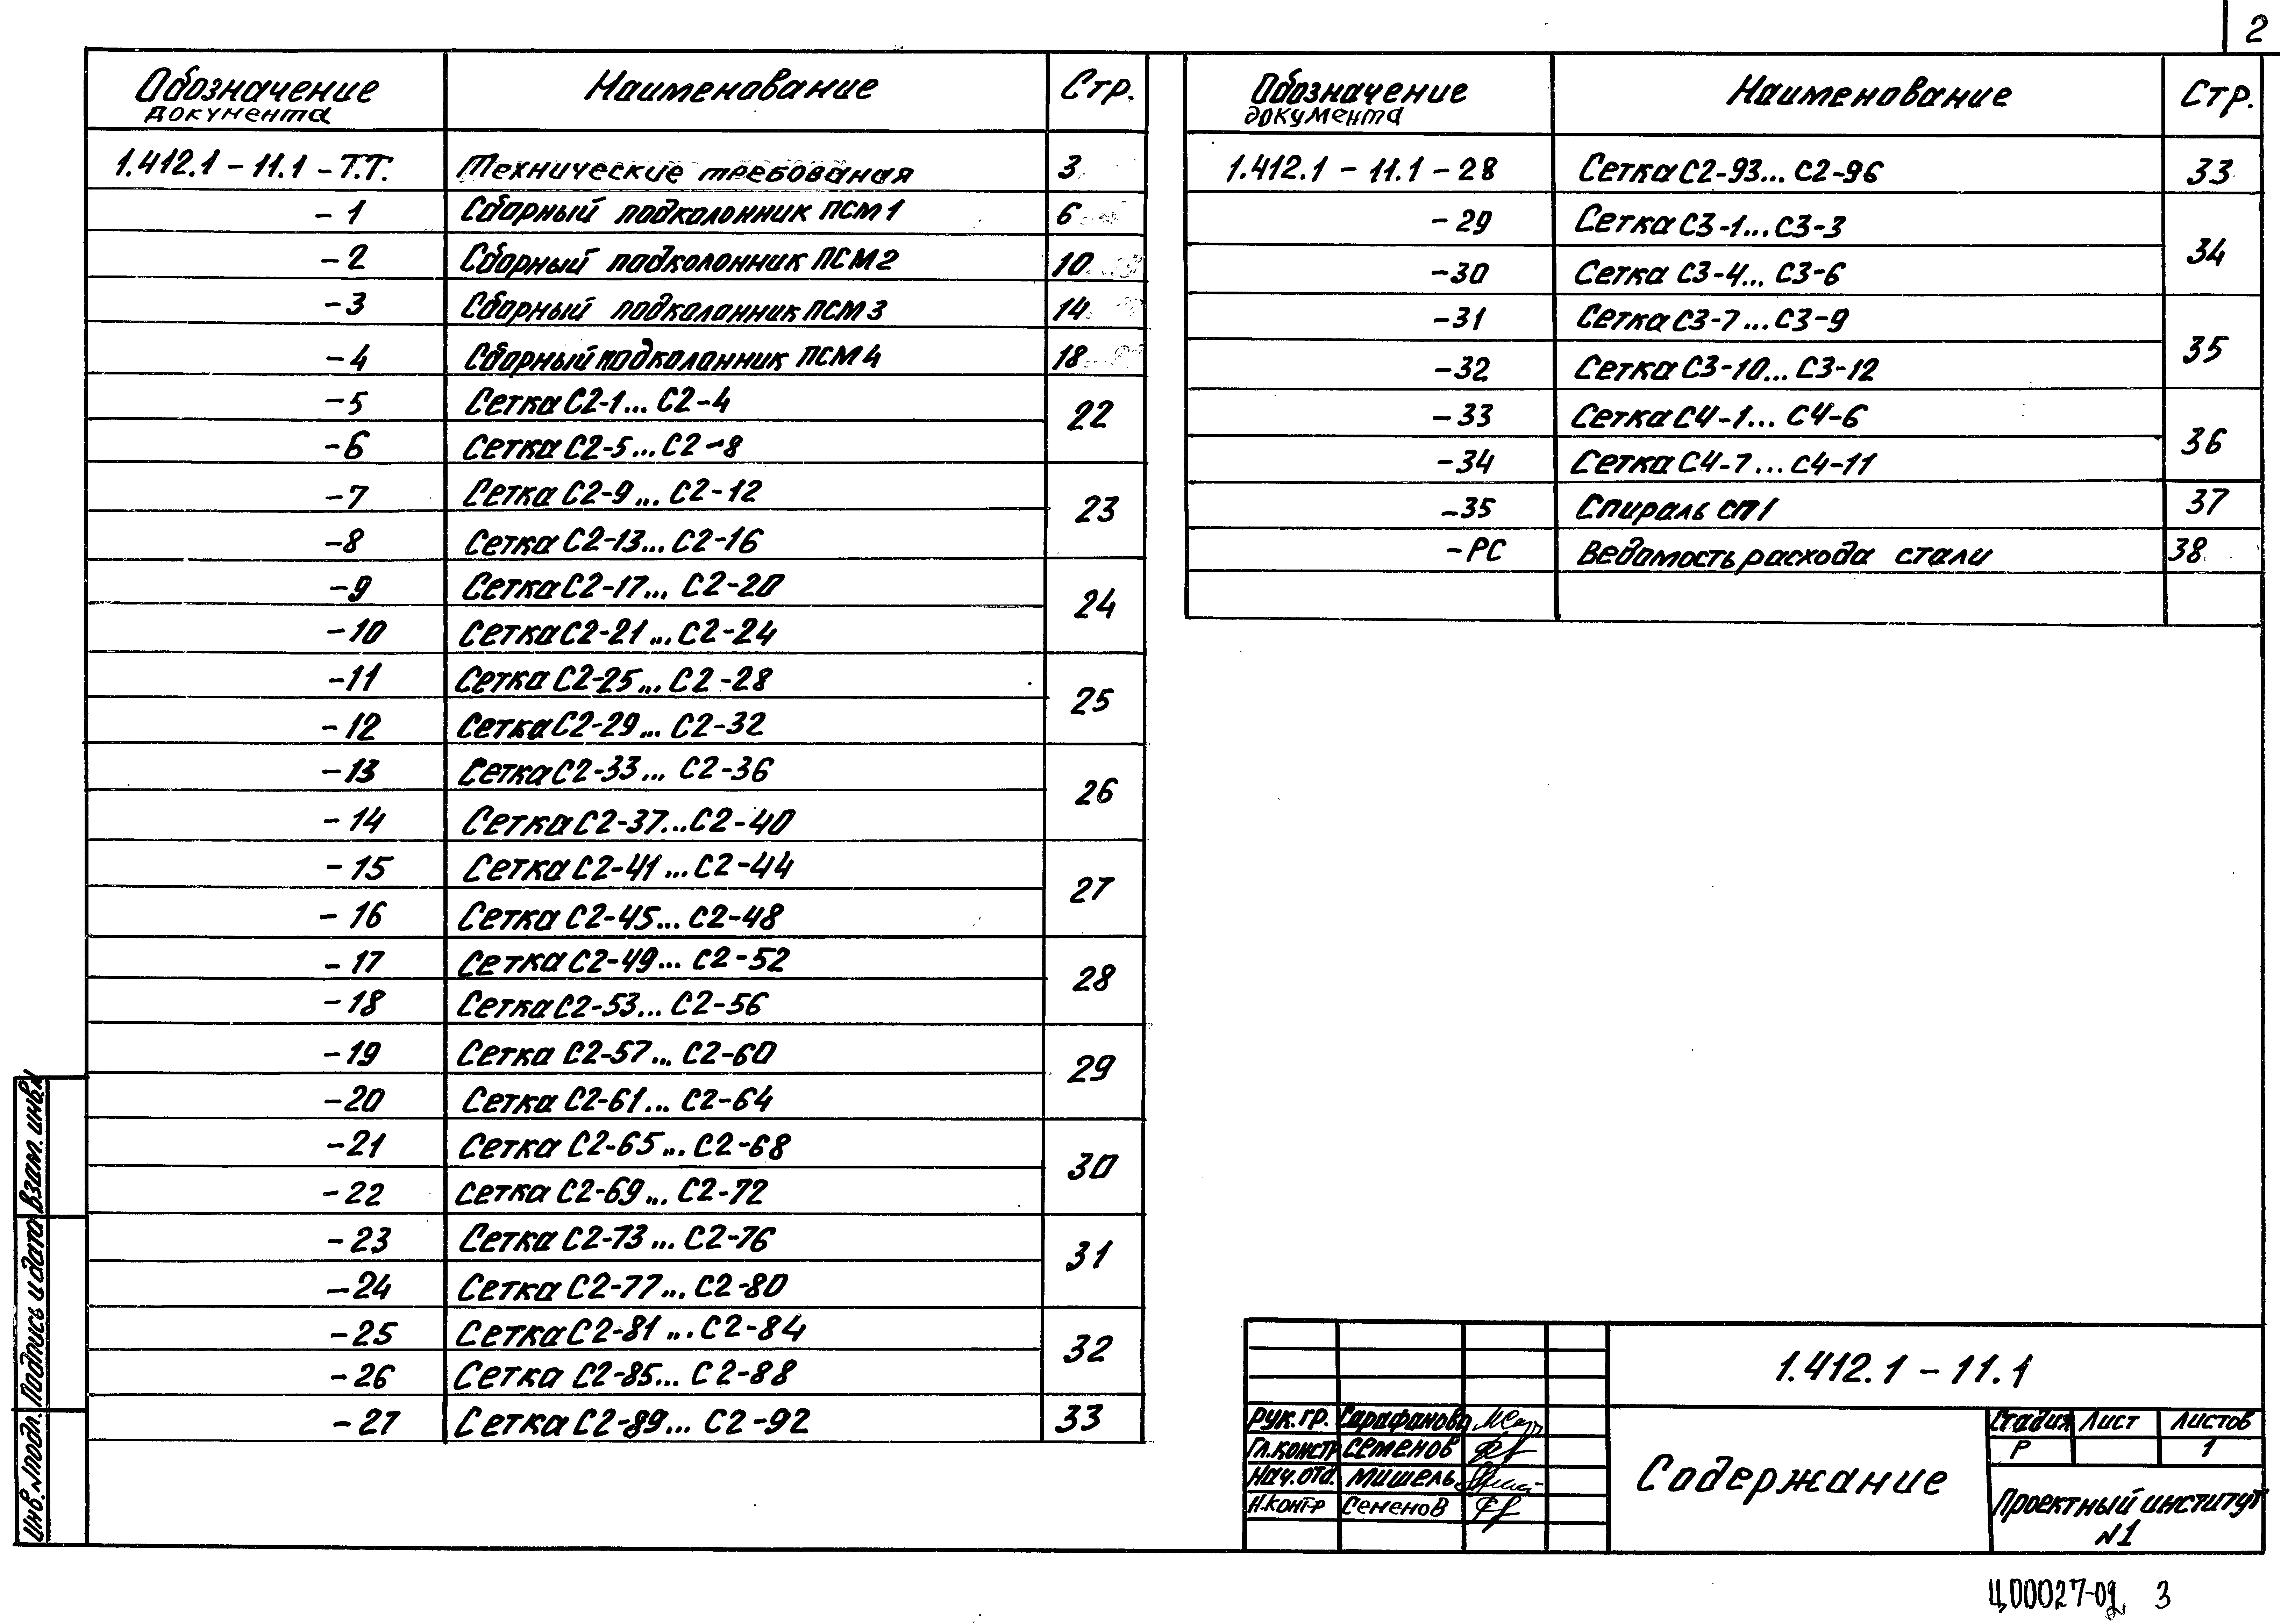 2
Обозначение документа Наименование Стр.
1.412.1 - 11.1 - Т.Т. Технические требованая 3
- 1 Сборный подколонник ПСМ1 6
- 2 Сборный подколонник ПСМ2 10
- 3 Сборный подколонник ПСМ3 14
- 4 Сборный подколонник ПСМ4 18
- 5 Сетка С2-1... С2-4 22
- 6 Сетка С2-5... С2-8
- 7 Сетка С2-9... С2-12 23
- 8 Сетка С2-13... С2-16
- 9 Сетка С2-17... С2-20 24
- 10 Сетка С2-21... С2-24
- 11 Сетка С2-25... С2-28 25
- 12 Сетка С2-29... С2-32
- 13 Сетка С2-33... С2-36 26
- 14 Сетка С2-37...С2-40
- 15 Сетка С2-41... С2-44 27
- 16 Сетка С2-45... С2-48
- 17 Сетка С2-49... С2-52 28
- 18 Сетка С2-53... С2-56
- 19 Сетка С2-57... С2-60 29
- 20 Сетка С2-61... С2-64
- 21 Сетка С2-65... С2-68 30
- 22 Сетка С2-69... С2-72
- 23 Сетка С2-73... С2-76 31
- 24 Сетка С2-77... С2-80
- 25 Сетка С2-81... С2-84 32
- 26 Сетка С2-85... С2-88
- 27 Сетка С2-89... С2-92 33
Обозначение документа Наименование Стр.
1.412.1 - 11.1 - 28 Сетка С2-93... С2-96 33
- 29 Сетка С3-1... С3-3 34
- 30 Сетка С3-4... С3-6
- 31 Сетка С3-7... С3-9 35
- 32 Сетка С3-10... С3-12
- 33 Сетка С4-1... С4-6 36
- 34 Сетка С4-7... С4-11
- 35 Спираль СП1 37
- РС Ведомость расхода стали 38
Инв.№подл. Подпись и дата Взам. инв.
1.412.1 - 11.1
Рук.гр. Сарафанова
Гл.констр Семенов
Нач.отд. Мишель
Н.контр Семенов
Содержание
Стадия Лист Листов
Р 1
Проектный институт
N1
Ц00027-02 3